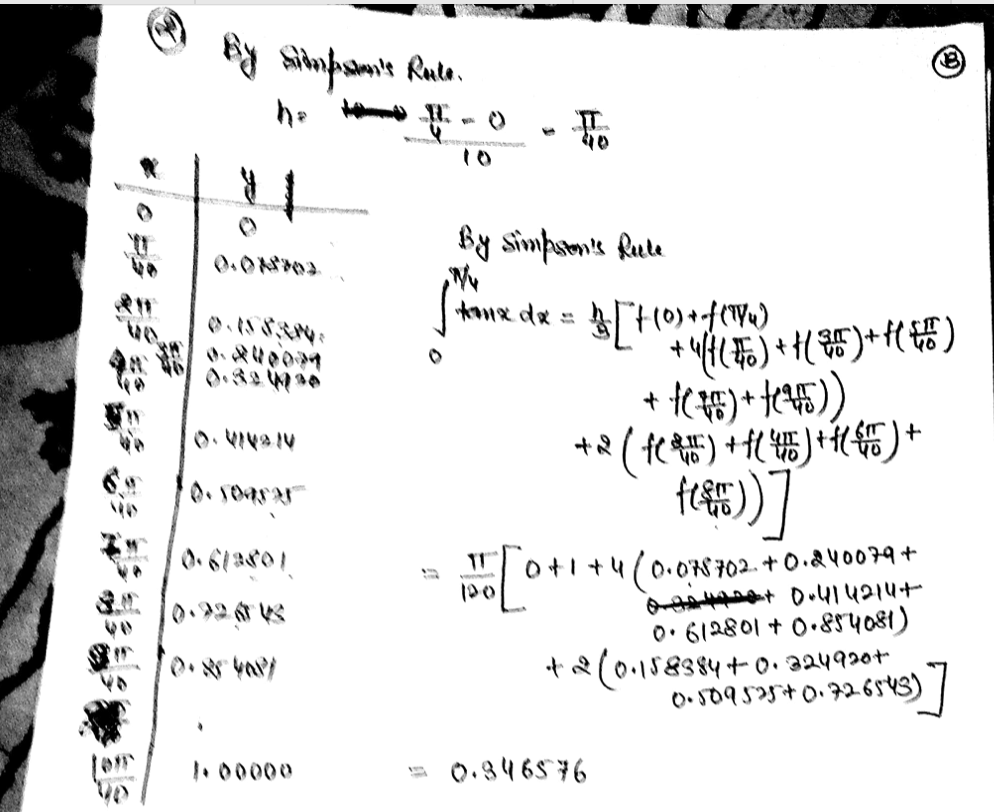 By Simpson's Rule.
B
h = π/4 - 0 / 10 = π/40
x y
0 0
π/40 0.078702
2π/40 0.158384
3π/40 0.240079
4π/40 0.324920
5π/40 0.414214
6π/40 0.509525
7π/40 0.612801
8π/40 0.726543
9π/40 0.854081
10π/40 1.00000
By Simpson's Rule
∫₀^π/4 tanx dx = h/3 [f(0)+f(π/4)
+4(f(π/40)+f(3π/40)+f(5π/40)
+ f(7π/40)+f(9π/40))
+2(f(2π/40)+f(4π/40)+f(6π/40)+
f(8π/40))]
= π/120 [0+1+4(0.078702+0.240079+
0.414214+
0.612801+0.854081)
+2(0.158384+0.324920+
0.509525+0.726543)]
= 0.346576